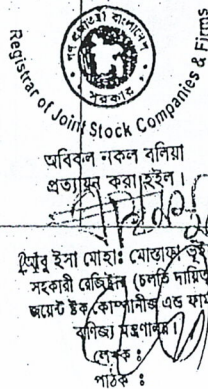 গণপ্রজাতন্ত্রী বাংলাদেশ
সরকার
Registrar of Joint Stock Companies & Firms
অবিকল নকল বলিয়া
প্রত্যায়ন করা হইল।
আবু ইসা মোহাঃ মোস্তাফা ভূঁই
সহকারী রেজিষ্ট্রার (চলতি দায়িত্ব
জয়েন্ট ষ্টক কোম্পানীজ এন্ড ফার্ম
বাণিজ্য মন্ত্রণালয়।
লেখক :
পাঠক :